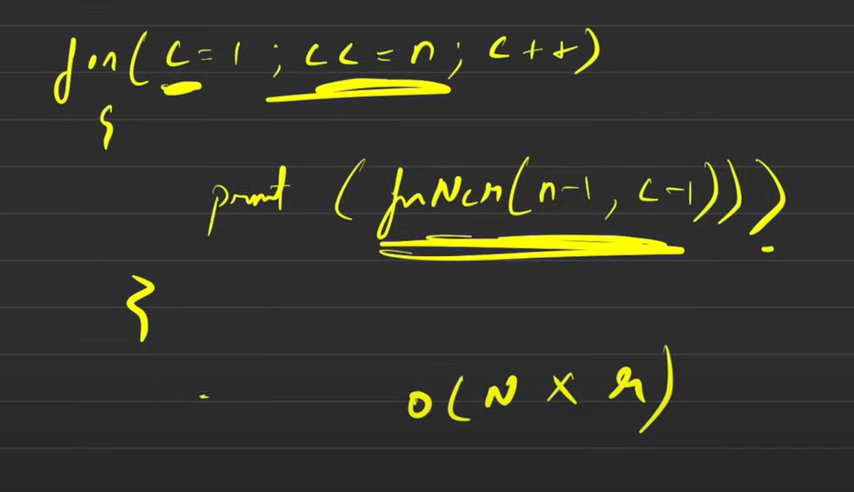 for( c = 1 ; c <= n ; c++)
{
print ( funNcr(n-1, c-1));
}
O(N x r)